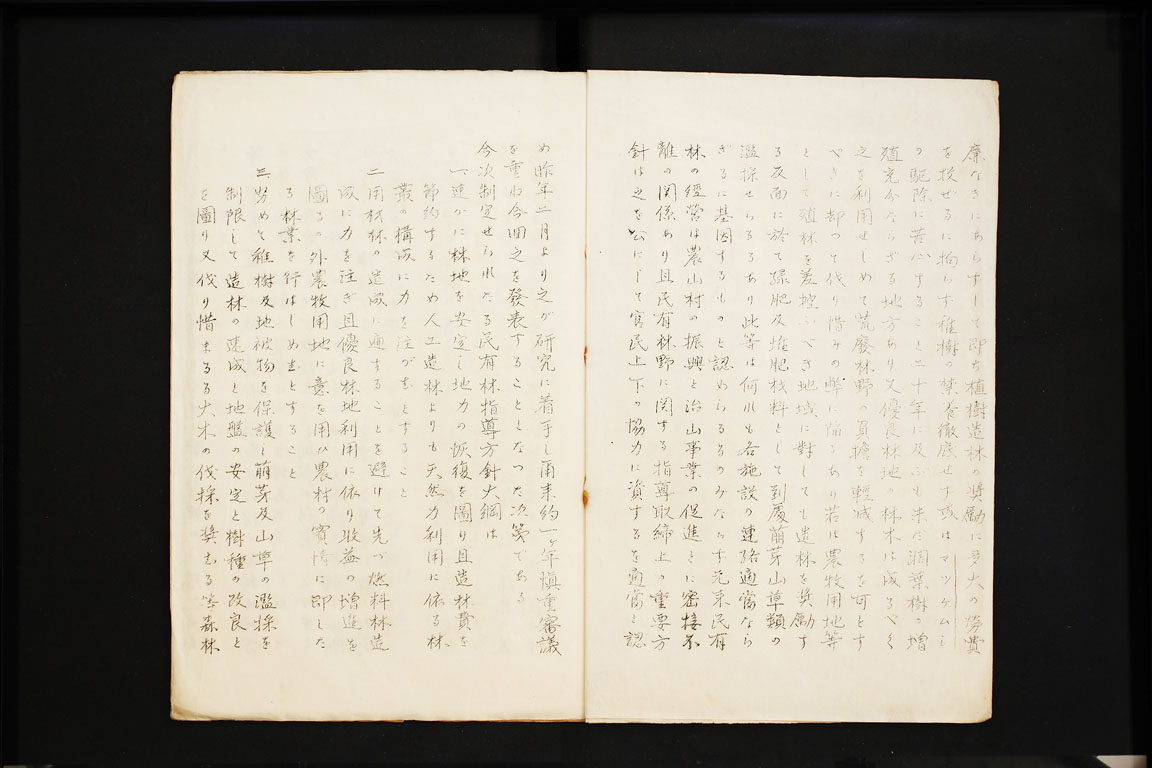 廉なきにあらずして即ち植樹造林の奨励に多大の労費
を投せるに拘らず稚樹の禁養徹底せず或はマツケムシ
の駆除に苦心すること二十年に及ぶも未だ濶葉樹の増
殖充分ならざる地方あり又優良林地の林木は成るべく
之を利用せしめて荒廃林野の負擔を軽減するを可とす
べきに却つて伐り惜みの弊に陥るあり若は農牧用地等
として殖林を差控ふべき地域に對しても造林を奨励す
る反面に於て緑肥及堆肥材料として到處萠芽山草類の
濫採せらるるあり此等は何れも各施設の連絡適當なら
ざるに基因するものと認めらるるのみならず元来民有
林の經營は農山村の振興と治山事業の促進とに密接不
離の関係あり且民有林野に関する指導取締上の重要方
針は之を公にして官民上下の協力に資するを適當と認
め昨年二月より之が研究に着手し爾来約一ヶ年慎重審議
を重ね今回之を發表することとなつた次第である
今次制定せられたる民有林指導方針大綱は
一、速かに林地を安定し地力の恢復を圖り且造林費を
節約するため人工造林よりも天然力利用に依る林
叢の構成に力を注がむとすること
二、用材林の造成に適することを避けて先づ燃料林造
成に力を注ぎ且優良林地利用に依り収益の増進を
圖るの外農牧用地に意を用ひ農村の實情に即した
る林業を行はしめむとすること
三、努めて稚樹及地被物を保護し萠芽及山草の濫採を
制限して造林の速成と地盤の安定と樹種の改良と
を圖り又伐り惜まるる大木の伐採を奨むる等森林